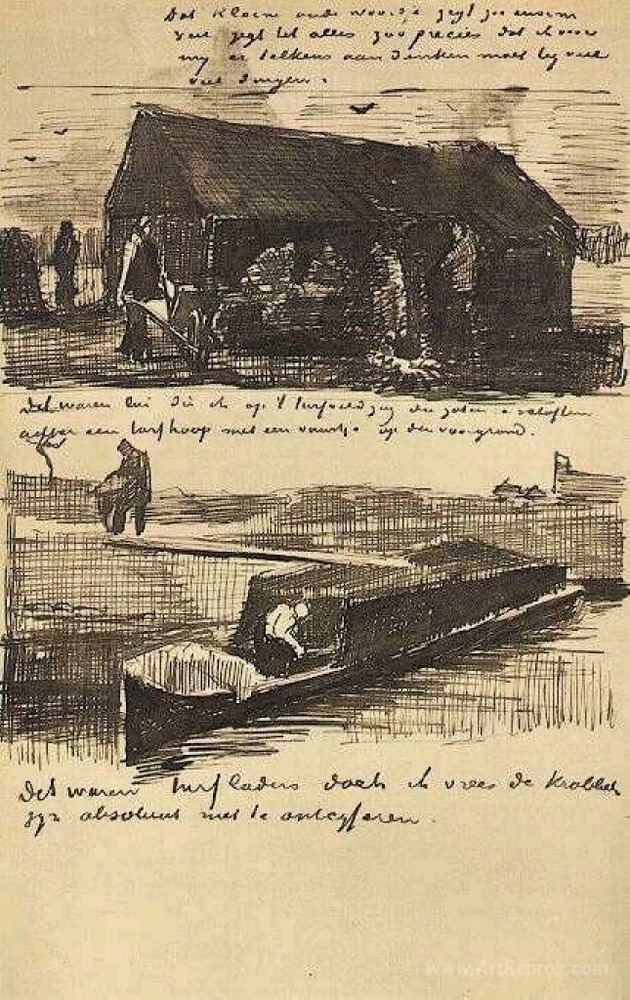 Dat kleine oude woordje zegt zoo enorm
veel zegt het alles zoo precies dat ik voor
my er telkens aan denken moet by veel
veel dingen.
Dit waren lui die ik op 't turfveld zag die zaten e schoften
achter een turfhoop met een vuurtje op den voorgrond.
Dit waren turfladers doch ik vrees de krabbels
zyn absoluut niet te ontcyferen.
www.ArtRepros.com